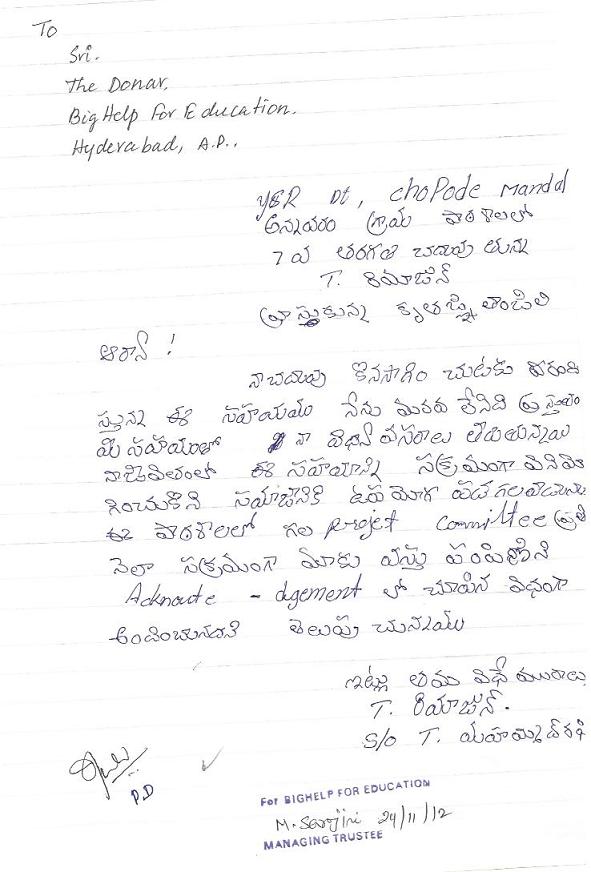 To
Sri.
The Donar.
Big Help For Education.
Hyderabad, A.P.,
YSR Dt, choPode Mandal
అన్నవరం గ్రామ పాఠశాలలో
7 వ తరగతి చదువు తున్న
T. రియాజున్
వ్రాస్తుకున్న కృతజ్ఞతాంజలి
నాచదువు కొనసాగిం చుటకు
స్తున్న ఈ సహాయము నేను మరచు లేనిది ప్రస్తుతం
మీ సహాయంతో నా
ఈ సహాయాన్ని సక్రమంగా వినియో
గించుకొని సమాజానికి ఉపయోగ పడగలవాడను
ఈ పాఠశాలలో గల Project Committee ప్రతి
నెలా సక్రమంగా మాకు వస్తు
Acknoute - dgement లో చూపిన విధంగా
అందించుచున్నదని తెలుపు చున్నాము
ఇట్లు తమ విధే యురాలు
T. రియాజున్.
S/o T.
P.D
For BIGHELP FOR EDUCATION
M. Sarojini 24/11/12
MANAGING TRUSTEE